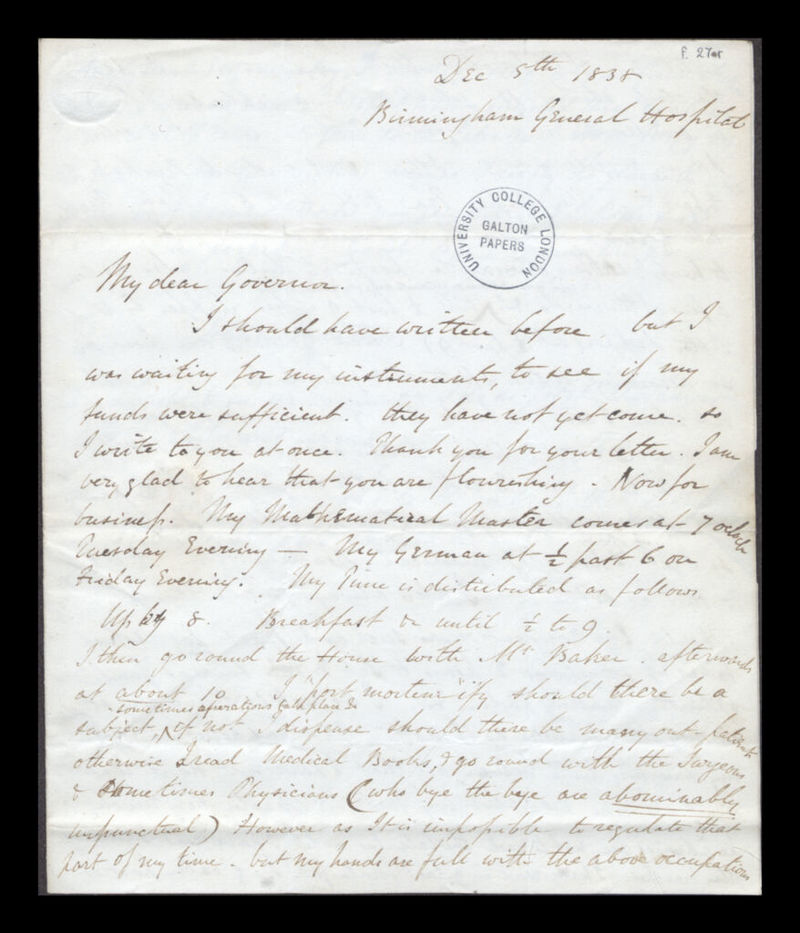 f. 27r
Dec 5th 1838
Birmingham General Hospital
UNIVERSITY COLLEGE LONDON
GALTON
PAPERS
My dear Governor.
I should have written before. but I
was waiting for my instruments, to see if my
funds were sufficient. they have not yet come. so
I write to you at once. Thank you for your letter. I am
very glad to hear that you are flourishing - Now for
business. My Mathematical Master comes at 7 oclock
Tuesday Evening — My German at ½ past 6 on
Friday Evening. My Time is distributed as follows
Up by 8. Breakfast &c until ½ to 9.
I then go round the House with Mr Baker. afterwards
at about 10 I "post mortem"ify should there be a
- sometimes operations take place &c
subject, if not I dispense should there be many out-patients
otherwise I read Medical Books, & go round with the Surgeons
& sometimes Physicians (who bye the bye are abominably
unpunctual) However as It is impossible to regulate that
part of my time - but my hands are full with the above occupations